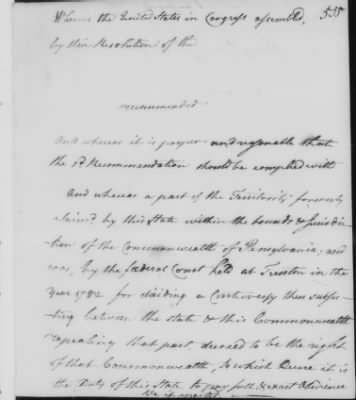 Whereas the United States in Congress assembled, 535
by their Resolution of the
recommended
And whereas it is proper and reasonable that
the sd. Recommendation should be complied with
And whereas a part of the Territority formerly
claimd. by this State within the bounds & Jurisdic
tion of the Commonwealth of Pensylvania; and
was, by the fœderal Court held at Trenton in the
Year 1782 for deciding a Controversy then subsis
ting between the State & this Commonwealth
respecting that part, decreed to be the right
of that Commonwealth, to which Decree it is
the Duty of this State to pay full & exact Obedience
Be it enacted